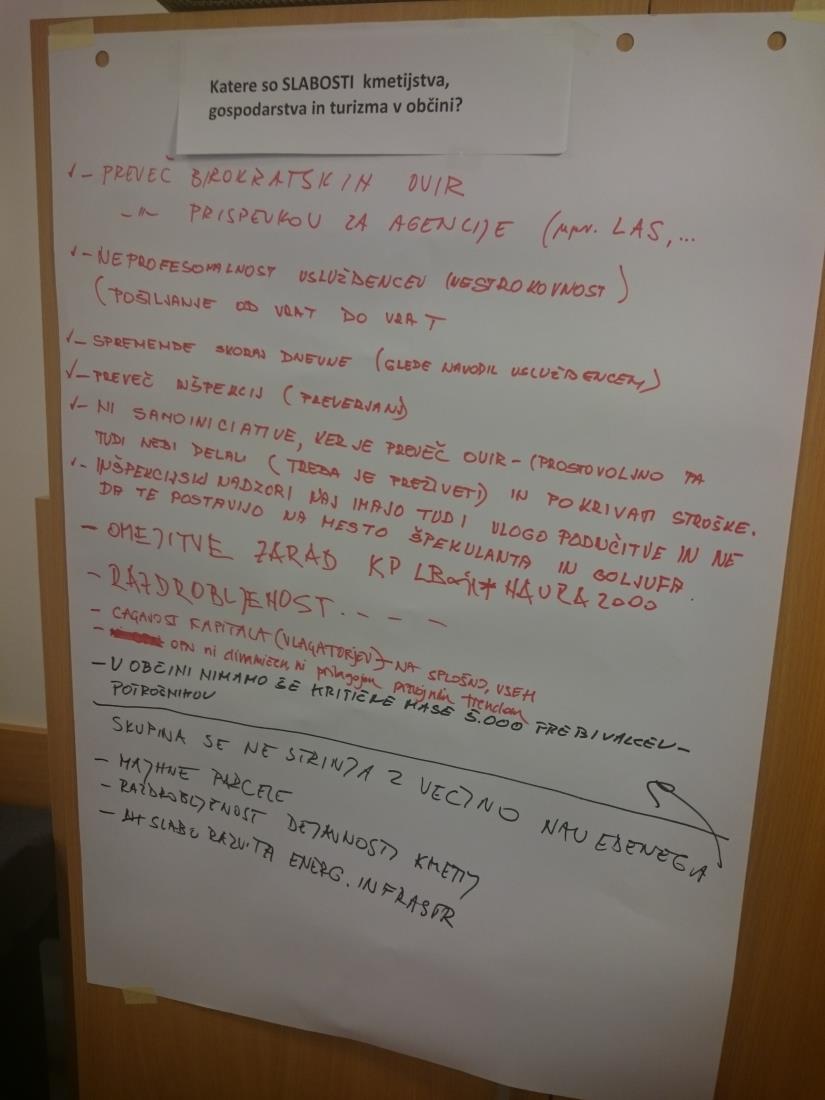 Katere so SLABOSTI kmetijstva,
gospodarstva in turizma v občini?
✓- PREVEČ BIROKRATSKIH OVIR
-"- PRISPEVKOV ZA AGENCIJE (npr. LAS,...
✓- NEPROFESONALNOST USLUŽDENCEV (NESTROKOVNOST)
(POŠILJANJE OD VRAT DO VRAT
✓- SPREMEMBE SKORAJ DNEVNE (GLEDE NAVODIL USLUŽBENCEM)
✓- PREVEČ INŠPEKCIJ (PREVERJANJ)
✓- NI SAMOINICIATIVE, KER JE PREVEČ OVIR - (PROSTOVOLJNO PA
TUDI NEBI DELAL (TREBA JE PREŽIVETI) IN POKRIVATI STROŠKE.
✓- INŠPEKCIJSKI NADZORI NAJ IMAJO TUDI VLOGO PODUČITVE IN NE
DA TE POSTAVIJO NA MESTO ŠPEKULANTA IN GOLJUFA.
- OMEJITVE ZARAD KP LB NATURA 2000
- RAZDROBLJENOST - - - -
- CAGAVOST KAPITALA (VLAGATORJEV) - NA SPLOŠNO, VSEH
- OPN ni dinamičen ni prilagojen trendom
- V OBČINI NIMAMO ŠE KRITIČNE MASE 5.000 PREBIVALCEV -
POTROŠNIKOV
SKUPINA SE NE STRINJA Z VEČINO NAVEDENEGA
- MAJHNE PARCELE
- RAZDROBLJENOST DEJAVNOSTI KMETIJ
- SLABO RAZVITA ENERG. INFRASTR